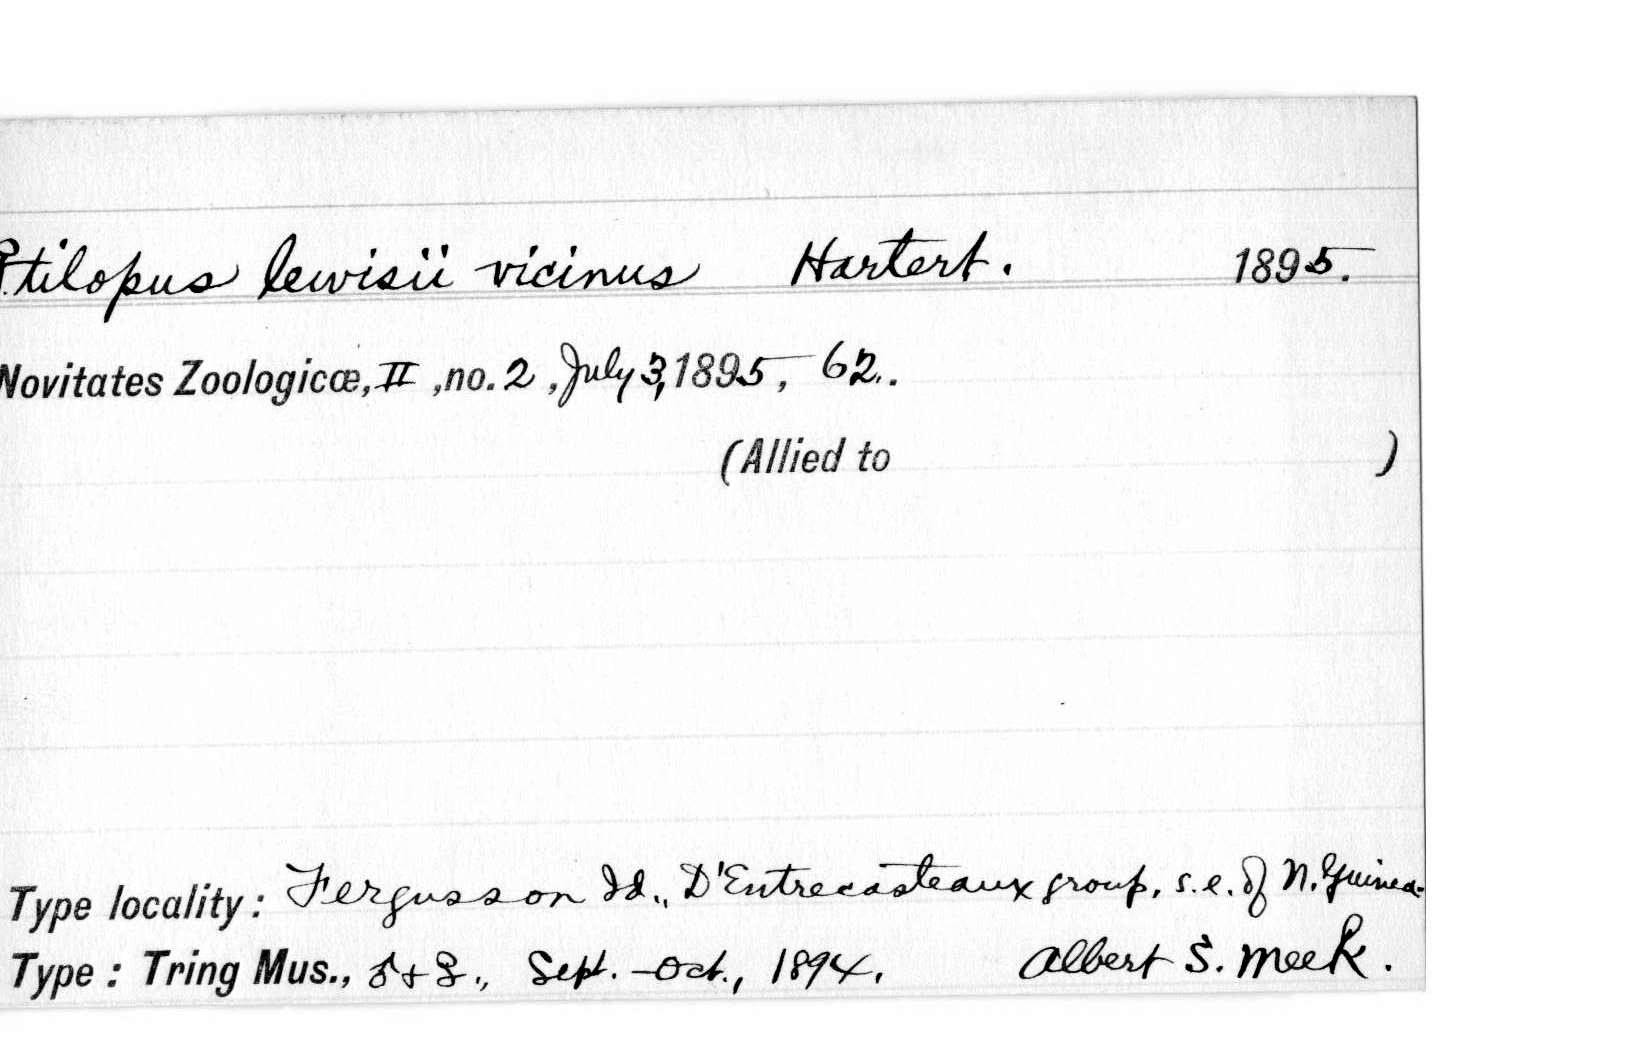 Ptilopus lewisii vicinus Hartert. 1895.
Novitates Zoologicæ, II, no. 2, July 3, 1895, 62.
(Allied to )
Type locality: Fergusson Id., D'Entrecasteaux group, s.e. of N. Guinea.
Type: Tring Mus., ♂ + ♀., Sept.-Oct., 1894. Albert S. Meek.